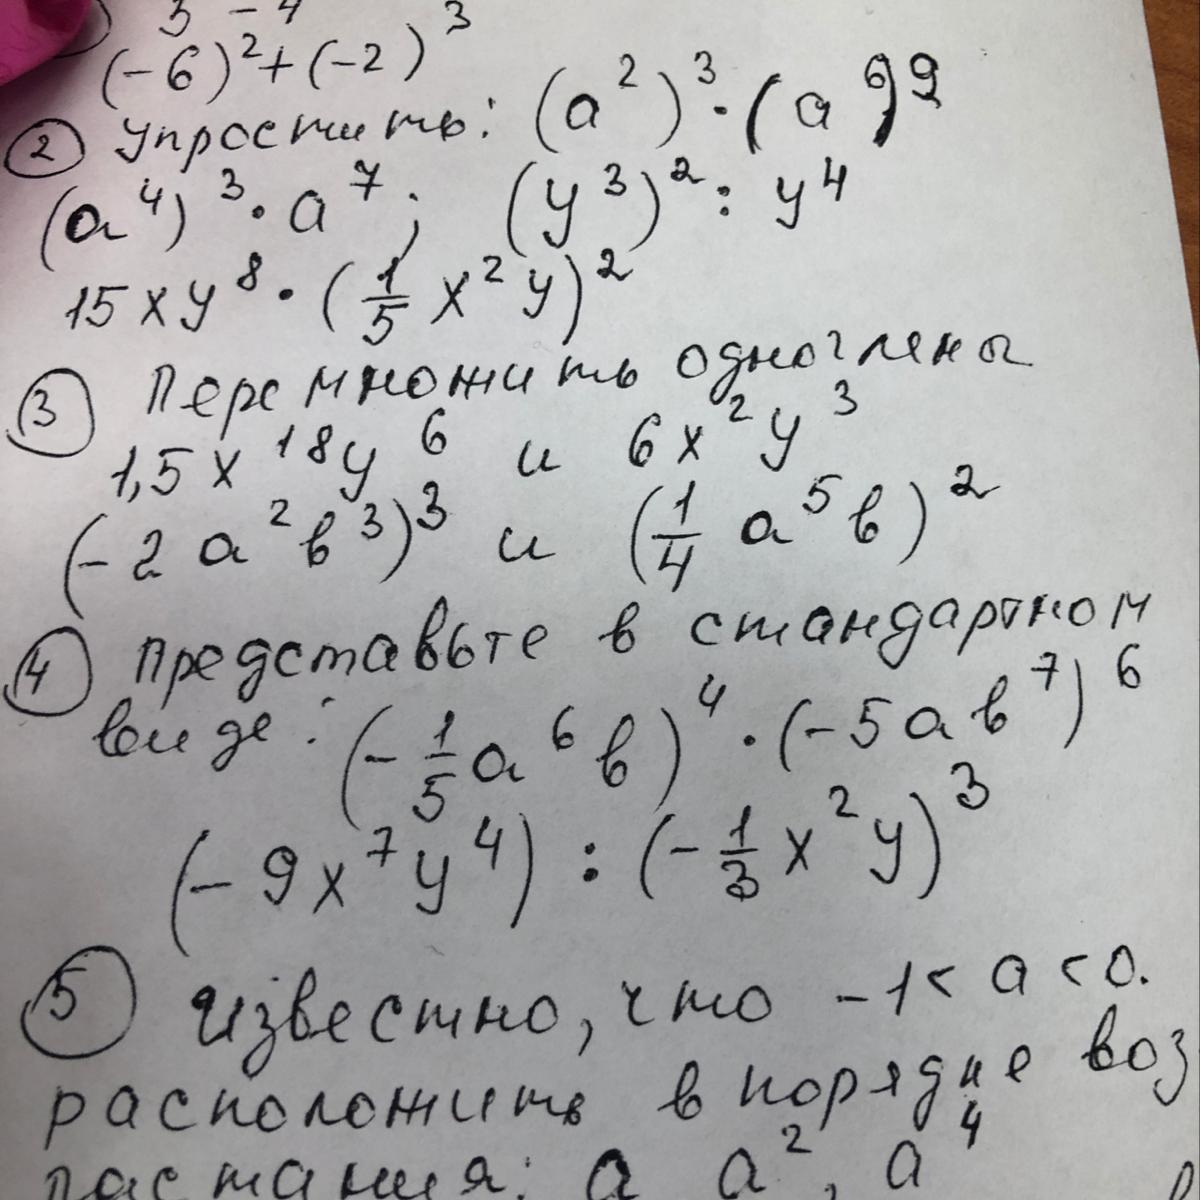 3 - 4
(-6)² + (-2)³
② Упростить: (a²)³ · (a⁶)⁹
(a⁴)³ · a⁷; (y³)² : y⁴
15xy⁸ · (1/5 x²y)²
③ Перемножить одночлены
1,5x¹⁸y⁶ и 6x²y³
(-2a²b³)³ и (1/4 a⁵b)²
④ Представьте в стандартном
виде: (-1/5 a⁶b)⁴ · (-5ab⁷)⁶
(-9x⁷y⁴) : (-1/3 x²y)³
⑤ Известно, что -1 < a < 0.
расположить в порядке воз
растания: a a², a⁴